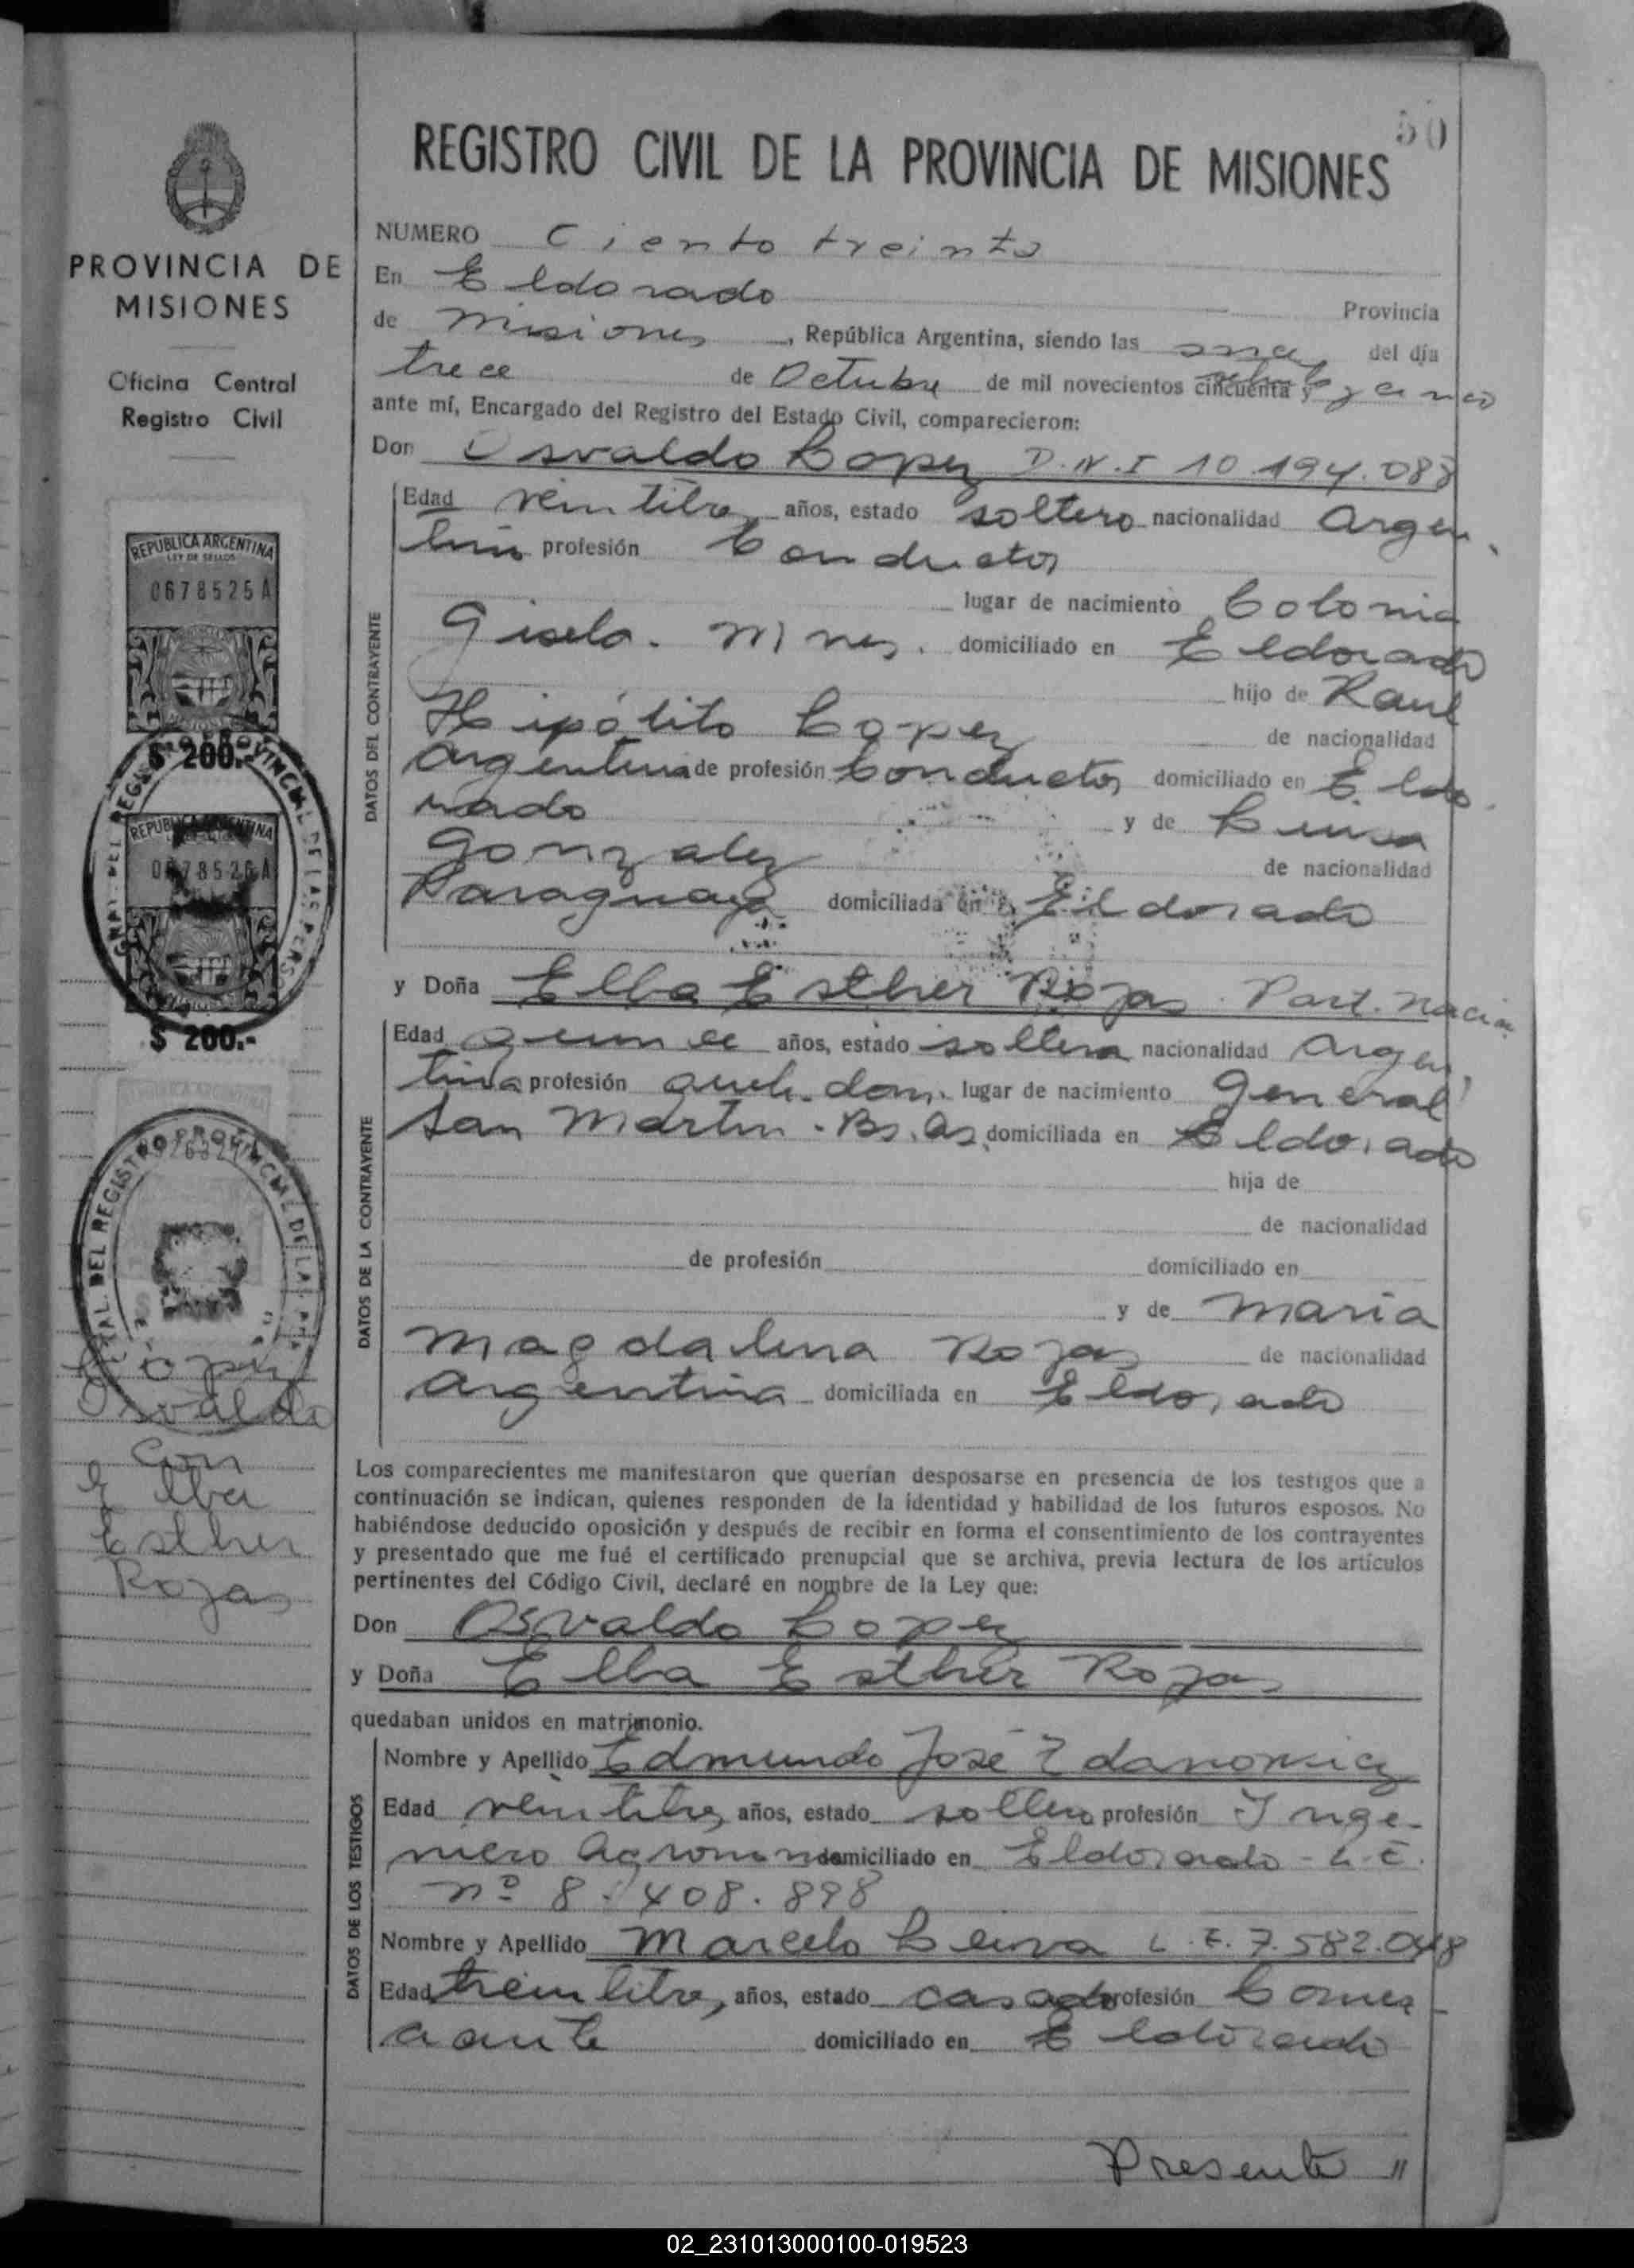 50
REGISTRO CIVIL DE LA PROVINCIA DE MISIONES
PROVINCIA DE
MISIONES
Oficina Central
Registro Civil
REPUBLICA ARGENTINA
LEY DE SELLOS
0678525 A
$ 200.-
REPUBLICA ARGENTINA
0678526 A
$ 200.-
Lopez
Osvaldo
Con
Elba
Esther
Rojas
NUMERO Ciento treinta
En Eldorado Provincia
de Misiones, República Argentina, siendo las once del día
trece de Octubre de mil novecientos cincuenta y setenta y cinco
ante mí, Encargado del Registro del Estado Civil, comparecieron:
Don Osvaldo Lopez D.N.I 10.194.088
DATOS DEL CONTRAYENTE
Edad veintitres años, estado soltero nacionalidad Argen
tino profesión Conductor
lugar de nacimiento Colonia
Gisela. Mnes. domiciliado en Eldorado
hijo de Raul
Hipólito Lopez de nacionalidad
Argentina de profesión Conductor domiciliado en Eldo
rado y de Luisa
Gonzalez de nacionalidad
Paraguaya domiciliada en Eldorado
y Doña Elba Esther Rojas Part. Nacim
DATOS DE LA CONTRAYENTE
Edad quince años, estado soltera nacionalidad Argen
tina profesión queh. dom. lugar de nacimiento General
San Martin. Bs. As. domiciliada en Eldorado
hija de
de nacionalidad
de profesión domiciliado en
y de Maria
Magdalena Rojas de nacionalidad
Argentina domiciliada en Eldorado
Los comparecientes me manifestaron que querían desposarse en presencia de los testigos que a
continuación se indican, quienes responden de la identidad y habilidad de los futuros esposos. No
habiéndose deducido oposición y después de recibir en forma el consentimiento de los contrayentes
y presentado que me fué el certificado prenupcial que se archiva, previa lectura de los artículos
pertinentes del Código Civil, declaré en nombre de la Ley que:
Don Osvaldo Lopez
y Doña Elba Esther Rojas
quedaban unidos en matrimonio.
DATOS DE LOS TESTIGOS
Nombre y Apellido Edmundo José Zdanowicz
Edad veintitres años, estado soltero profesión Inge-
niero Agronomo domiciliado en Eldorado - L.E.
nº 8.408.898
Nombre y Apellido Marcelo Leiva L.E. 7.582.048
Edad treintitres, años, estado casado profesión Comer-
ciante domiciliado en Eldorado
Presente "
02_231013000100-019523